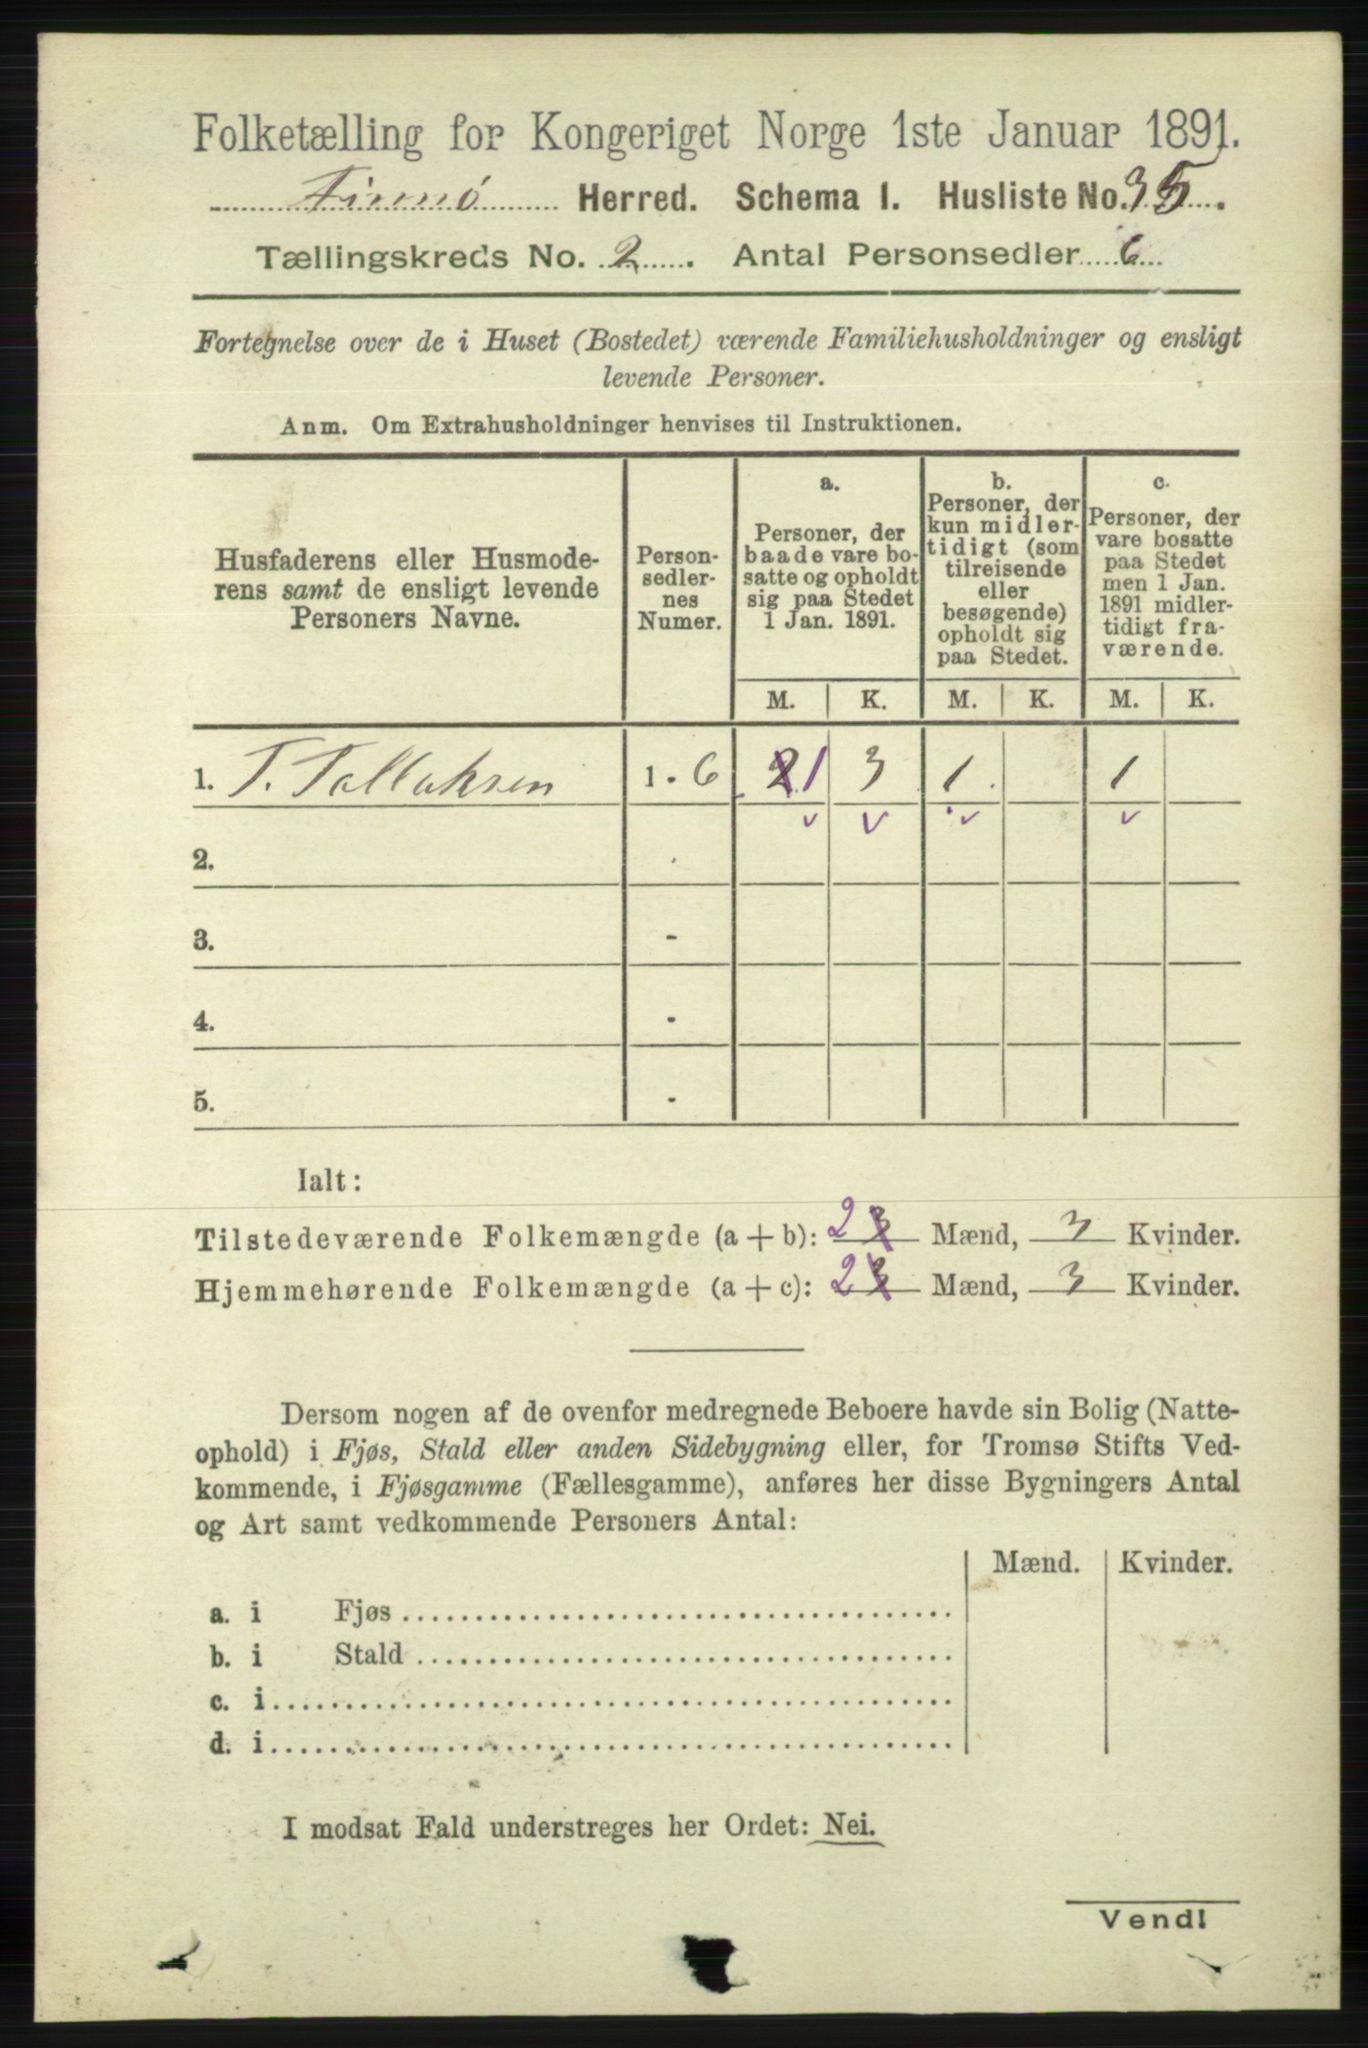 Folketælling for Kongeriget Norge 1ste Januar 1891.
Finnø Herred. Schema I. Husliste No. 35.
Tællingskreds No. 2. Antal Personsedler 6
Fortegnelse over de i Huset (Bostedet) værende Familiehusholdninger og ensligt
levende Personer.
Anm. Om Extrahusholdninger henvises til Instruktionen.
Husfaderens eller Husmode-
rens samt de ensligt levende
Personers Navne.
Person-
sedler-
nes
Numer.
a.
Personer, der
baade vare bo-
satte og opholdt
sig paa Stedet
1 Jan. 1891.
b.
Personer, der
kun midler-
tidigt (som
tilreisende
eller
besøgende)
opholdt sig
paa Stedet.
c.
Personer, der
vare bosatte
paa Stedet
men 1 Jan.
1891 midler-
tidigt fra-
værende.
M. K. M. K. M. K.
1. T. Tallaksen 1 - 6 2 1 3 1 1
2.
3. -
4. -
5. -
Ialt:
Tilstedeværende Folkemængde (a + b): 2 3 Mænd, 3 Kvinder.
Hjemmehørende Folkemængde (a + c): 2 3 Mænd, 3 Kvinder.
Dersom nogen af de ovenfor medregnede Beboere havde sin Bolig (Natte-
ophold) i Fjøs, Stald eller anden Sidebygning eller, for Tromsø Stifts Ved-
kommende, i Fjøsgamme (Fællesgamme), anføres her disse Bygningers Antal
og Art samt vedkommende Personers Antal:
Mænd. Kvinder.
a. i Fjøs
b. i Stald
c. i
d. i
I modsat Fald understreges her Ordet: Nei.
Vend!